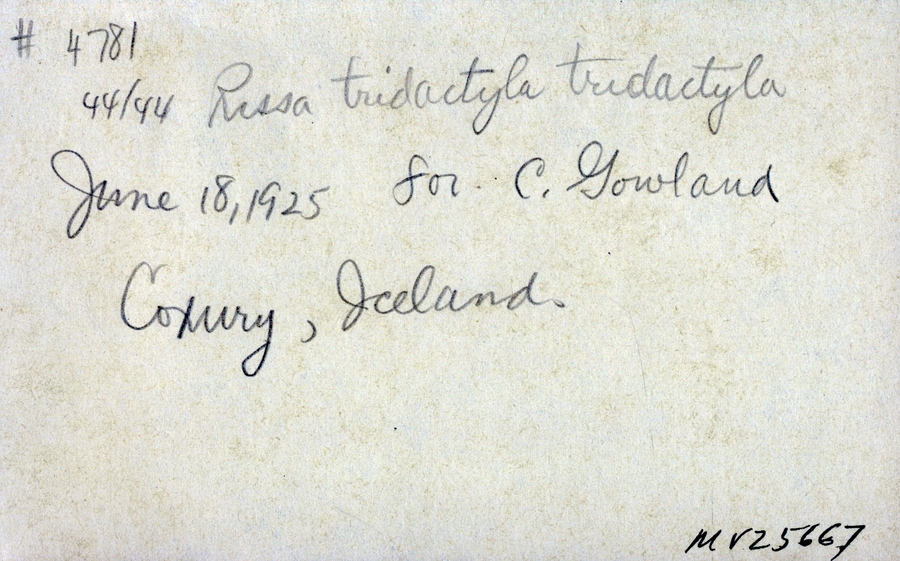 # 4781
44/44 Rissa tridactyla tridactyla
June 18, 1925 for C. Gowland
Iceland.
MV25667